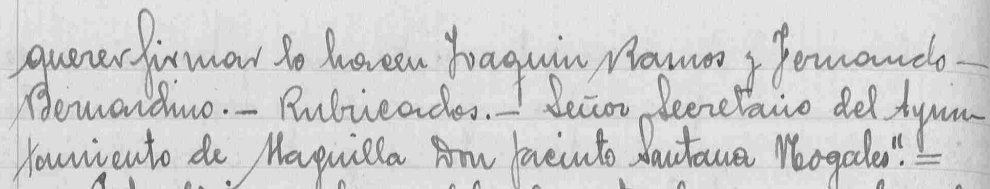 querer firmar lo hacen Joaquin Ramos y Fernando —
Bernardino. — Rubricados. — Señor Secretario del Ayun
tamiento de Maguilla Don Jacinto Santana Nogales". =